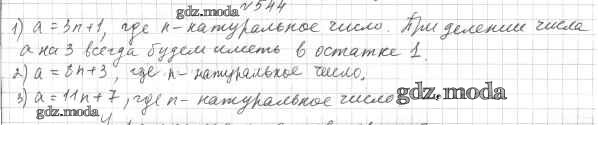 №544
gdz.moda
1) a = 3n+1, где n - натуральное число. При делении числа
a на 3 всегда будем иметь в остатке 1.
2) a = 8n+3, где n - натуральное число.
3) a = 11n+7, где n - натуральное число
gdz.moda
gdz.moda